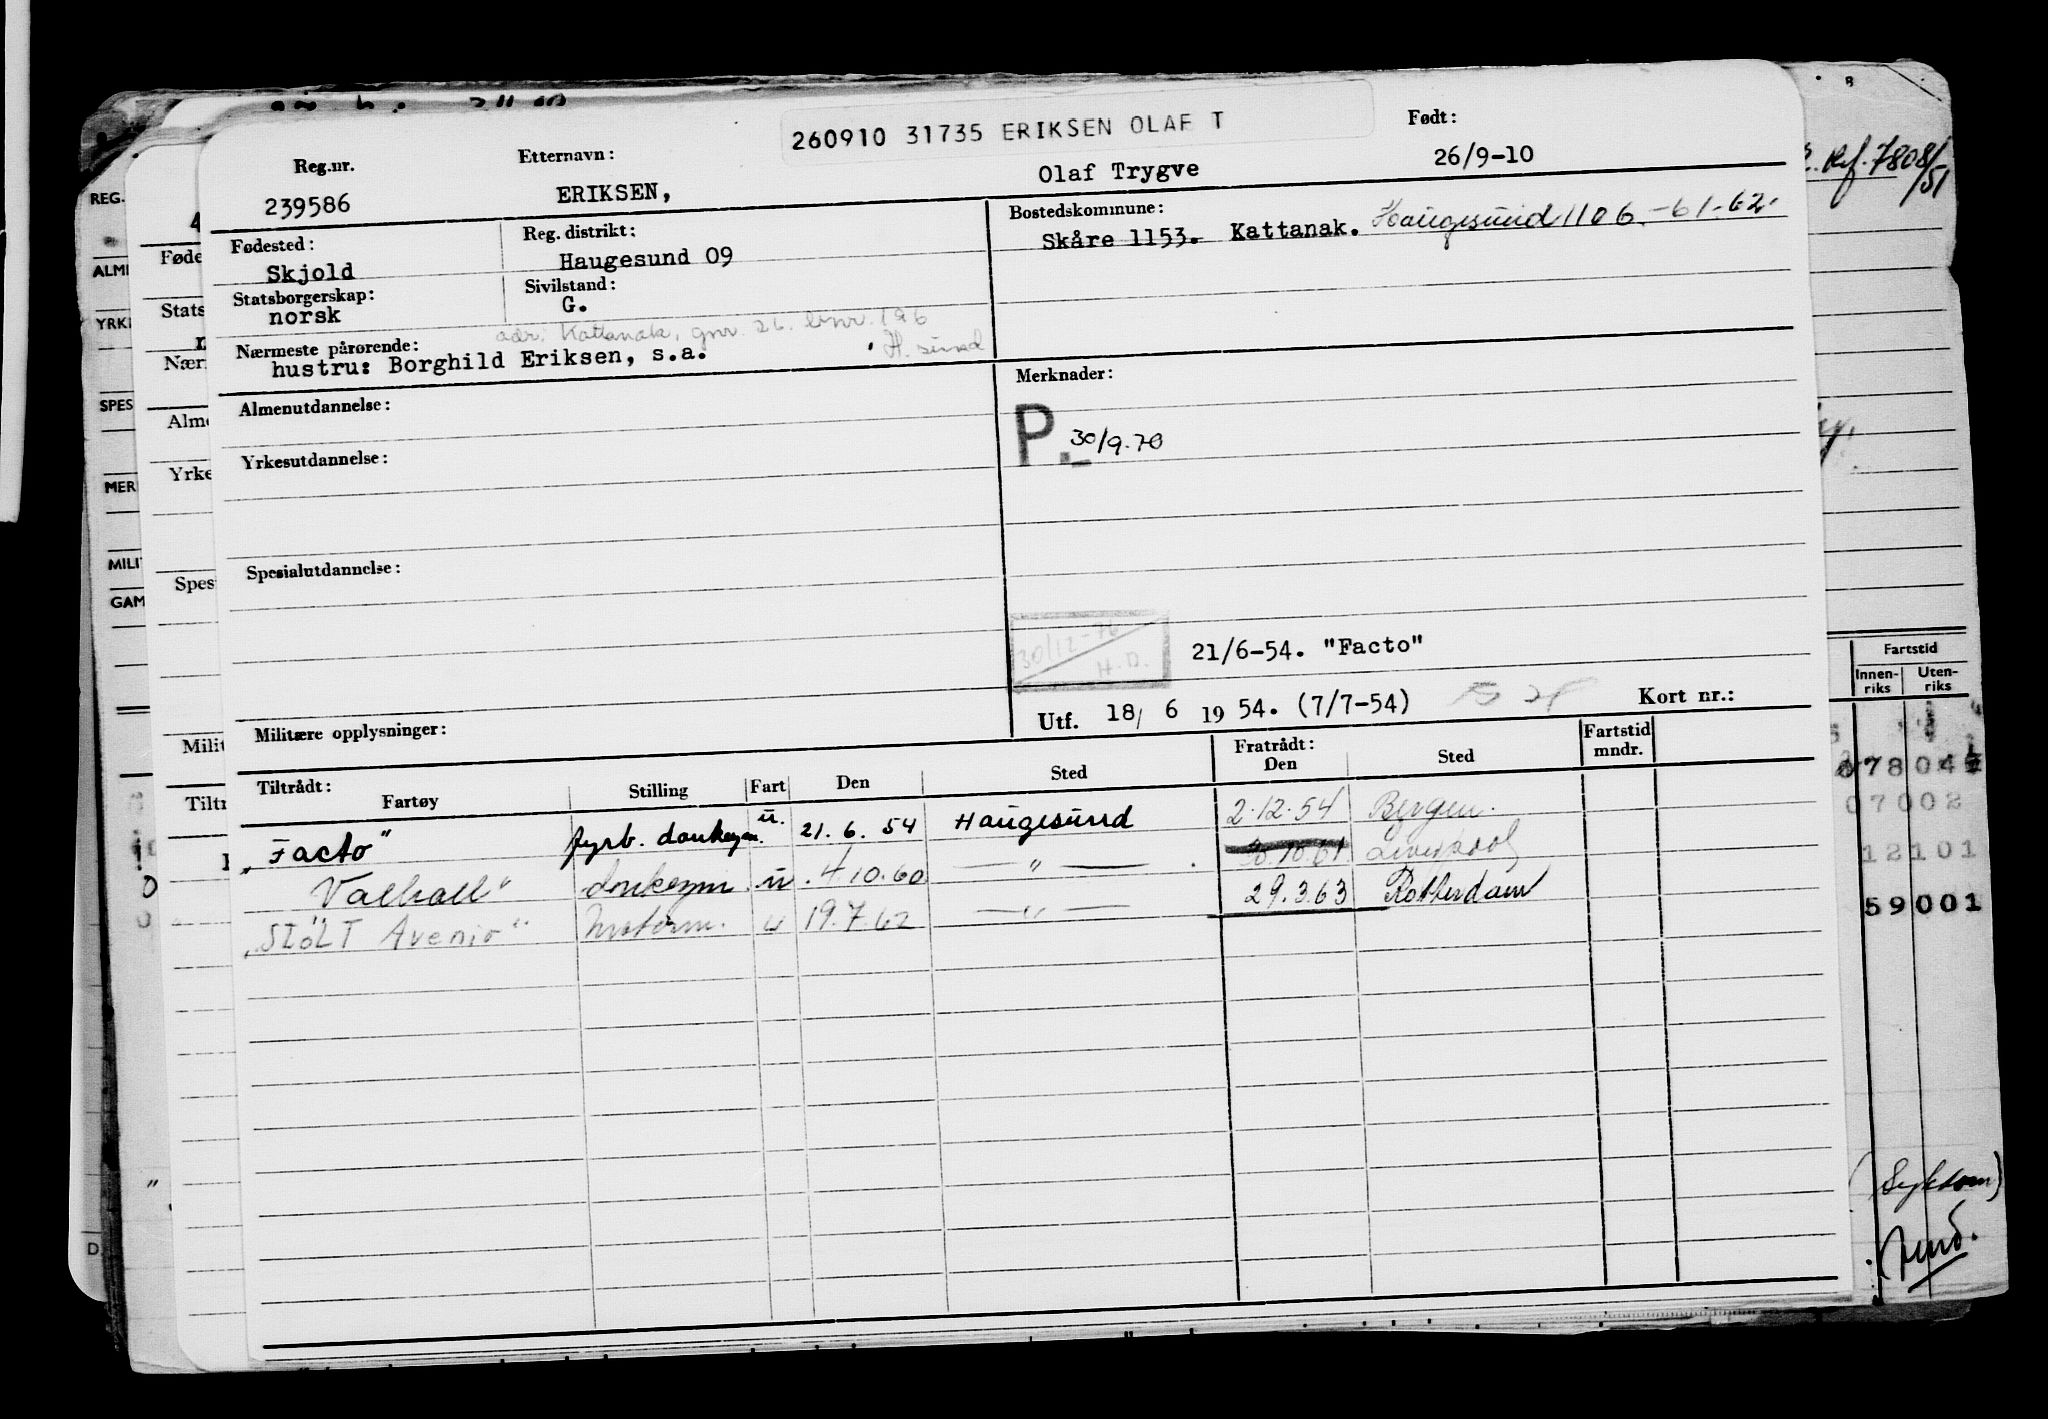 260910 31735 ERIKSEN OLAF T
Reg.nr. Etternavn: Født:
239586 ERIKSEN, Olaf Trygve 26/9-10
Fødested: Reg. distrikt: Bostedskommune:
Skjold Haugesund 09 Skåre 1153. Kattanak. Haugesund 1106.-61-62.
Statsborgerskap: Sivilstand:
norsk G.
adr: Kattanak, gnr. 26. bnr. 196
H. sund
Nærmeste pårørende:
hustru: Borghild Eriksen, s.a.
Almenutdannelse: Merknader:
P. 30/9.70
Yrkesutdannelse:
Spesialutdannelse:
30/12-76
H.D.
21/6-54. "Facto"
Militære opplysninger: Utf. 18/ 6 1954. (7/7-54) Kort nr.:
Tiltrådt: Fratrådt: Fartstid
Fartøy Stilling Fart Den Sted Den Sted mndr.
„Facto" fyrb. donkeym. u. 21. 6. 54 Haugesund 2.12.54 Bergen.
Valhall" donkeym u. 4 10.60 — " — . 10.61 Liverpool
„Stolt Avenir" Motorm. u 19.7.62 — " — 29.3.63 Rotterdam
REG.
ALM
YRK
SPES
MER
MILI
GAM
Føde
Stats
Nærr
Alme
Yrke
Spes
Milit
Tiltr
Ref. 7808/51
Fartstid
Innen-riks Uten-riks
07002
12101
59001
(Sykdom)